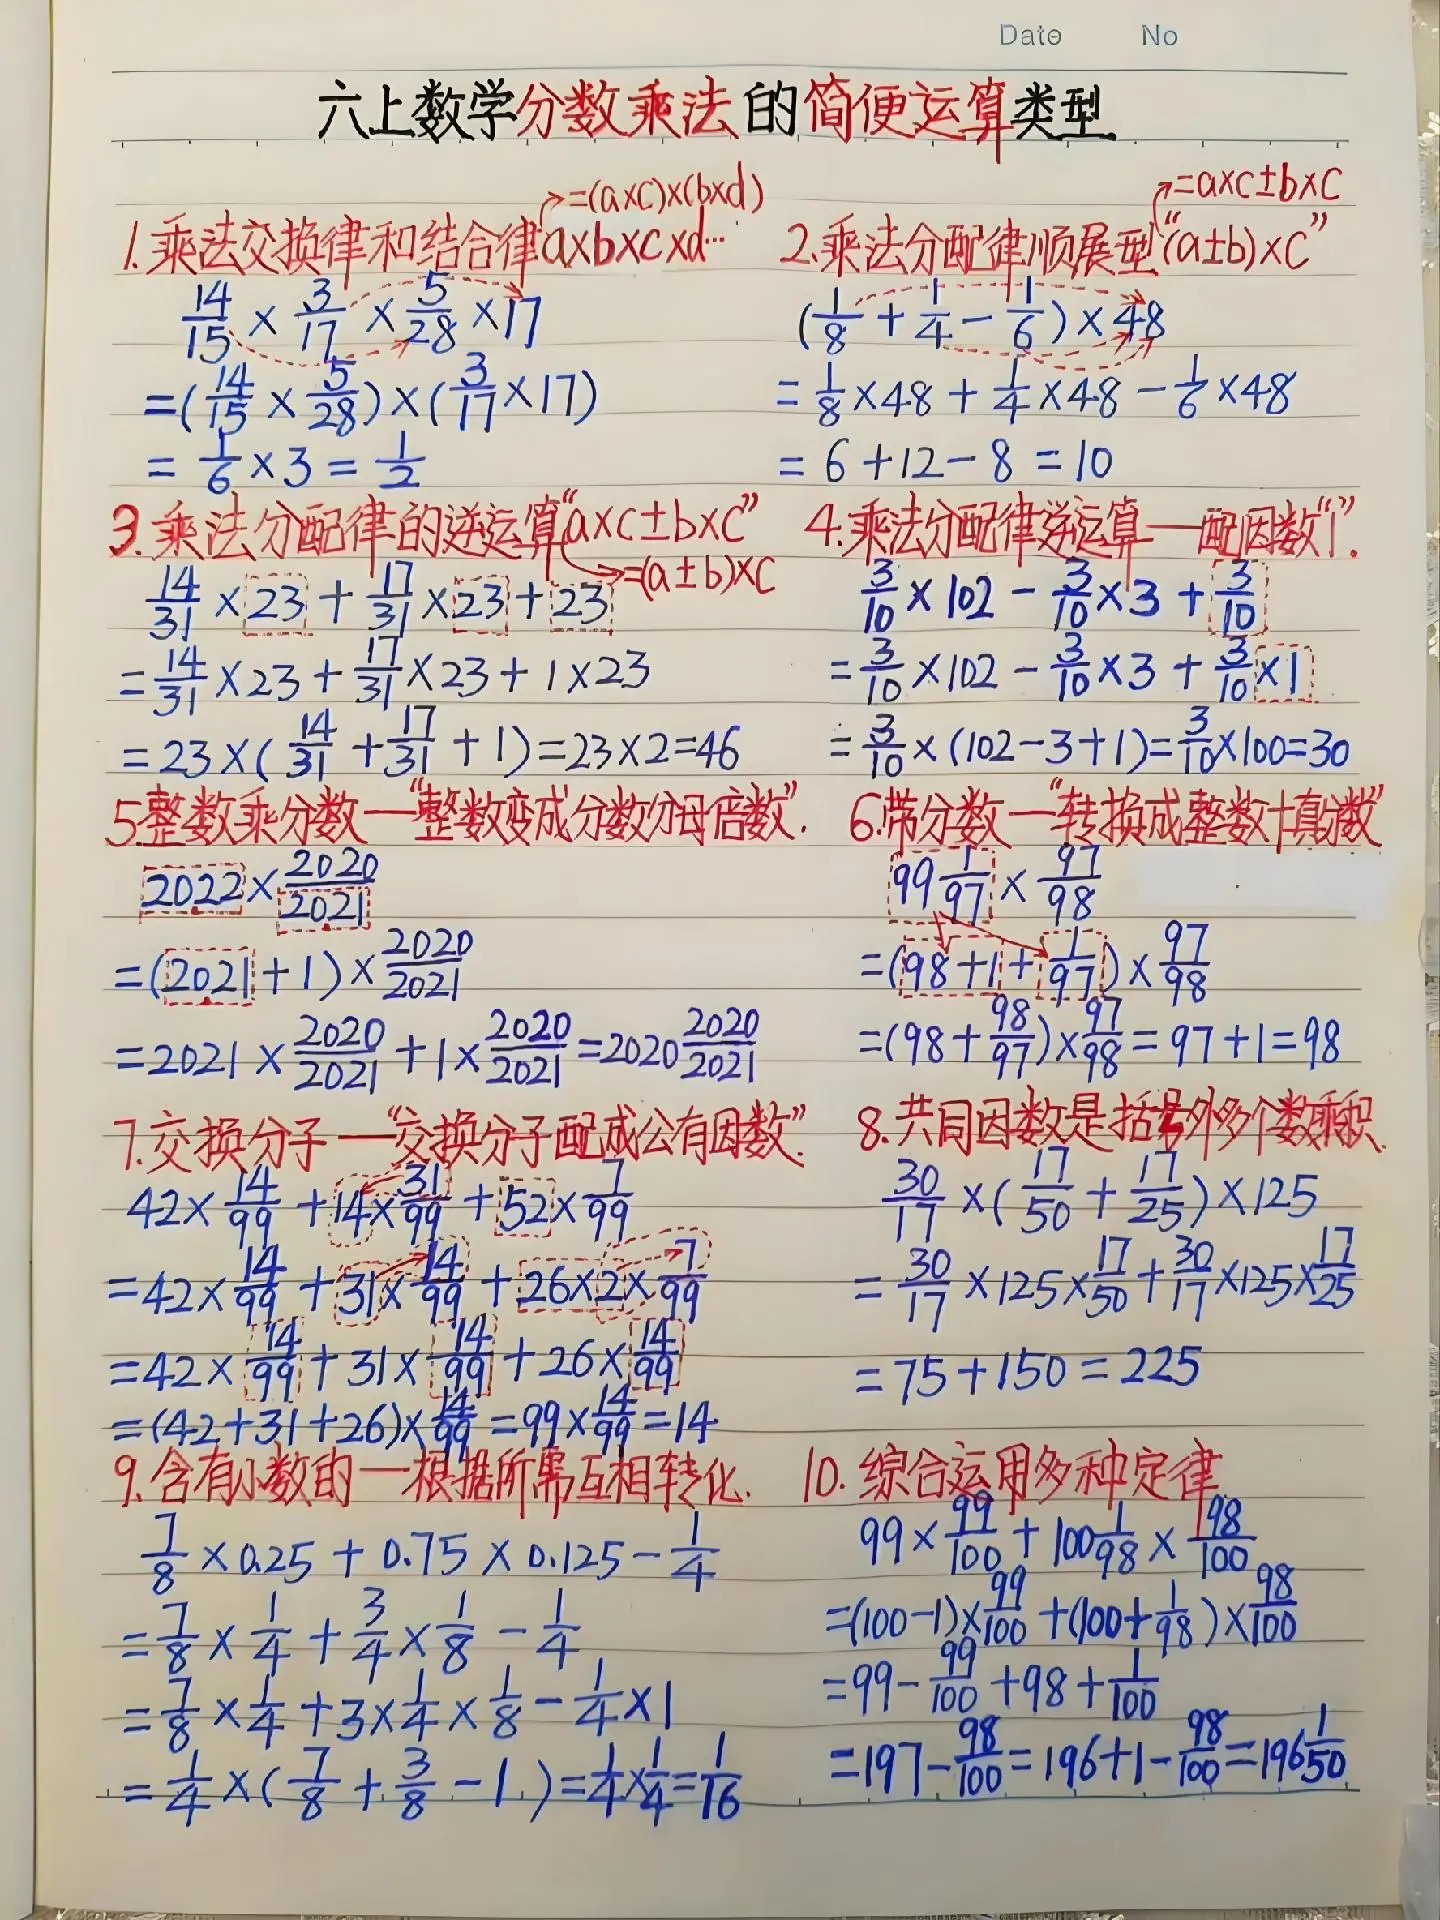 Date No
六上数学分数乘法的简便运算类型
1.乘法交换律和结合律a×b×c×d…
→=(a×c)×(b×d)
14/15 × 3/17 × 5/28 ×17
=(14/15 × 5/28)×(3/17 ×17)
= 1/6 ×3 = 1/2
2.乘法分配律顺展型“(a±b)×c”
→=a×c±b×c
(1/8 + 1/4 − 1/6)×48
= 1/8 ×48 + 1/4 ×48 − 1/6 ×48
= 6+12−8 =10
3.乘法分配律的逆运算“a×c±b×c”
→=(a±b)×c
14/31 ×23 + 17/31 ×23+23
= 14/31 ×23 + 17/31 ×23 + 1×23
=23×(14/31 + 17/31 + 1)=23×2=46
4.乘法分配律逆运算—配因数“1”.
3/10 ×102 − 3/10 ×3 + 3/10
= 3/10 ×102 − 3/10 ×3 + 3/10 ×1
= 3/10 ×(102−3+1)= 3/10 ×100=30
5.整数乘分数—“整数变成分数分母倍数”.
2022× 2020/2021
=(2021+1)× 2020/2021
=2021× 2020/2021 +1× 2020/2021 =2020 2020/2021
6.带分数—“转换成整数+真分数”
99 1/97 × 97/98
=(98+1+ 1/97)× 97/98
=(98+ 98/97)× 97/98 =97+1=98
7.交换分子—“交换分子配成公有因数”.
42× 14/99 +14× 31/99 +52× 7/99
=42× 14/99 +31× 14/99 +26×2× 7/99
=42× 14/99 +31× 14/99 +26× 14/99
=(42+31+26)× 14/99 =99× 14/99 =14
8.共同因数是括号外多个数乘积.
30/17 ×(17/50 + 17/25)×125
= 30/17 ×125× 17/50 + 30/17 ×125× 17/25
=75+150=225
9.含有小数的—根据所需互相转化.
7/8 ×0.25+0.75×0.125− 1/4
= 7/8 × 1/4 + 3/4 × 1/8 − 1/4
= 7/8 × 1/4 +3× 1/4 × 1/8 − 1/4 ×1
= 1/4 ×(7/8 + 3/8 −1)= 1/4 × 1/4 = 1/16
10.综合运用多种定律
99× 99/100 +100 1/98 × 98/100
=(100−1)× 99/100 +(100+ 1/98)× 98/100
=99− 99/100 +98+ 1/100
=197− 98/100 =196+1− 98/100 =196 1/50